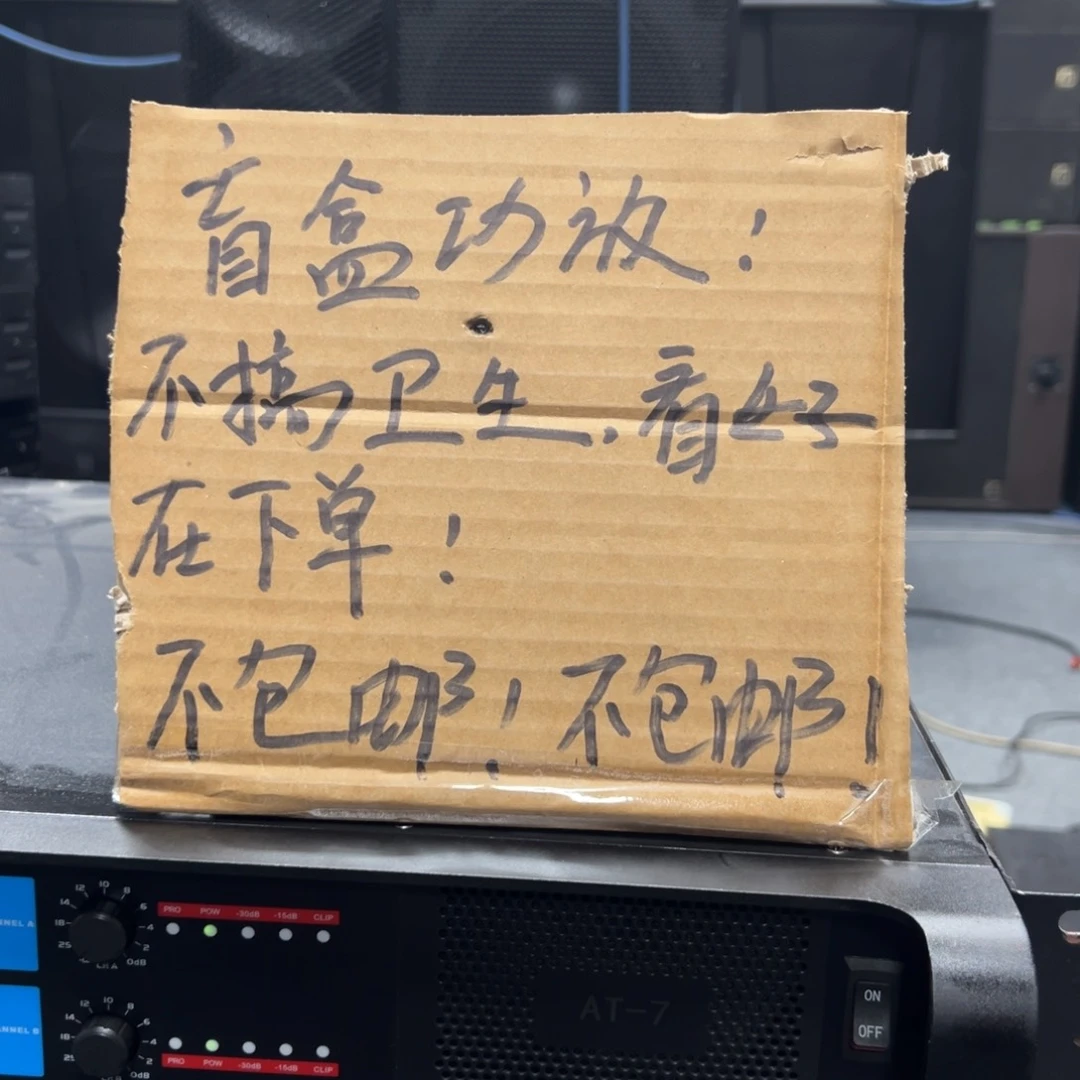 盲盒功放！
不搞卫生，看好
在下单！
不包邮！不包邮！
12 10 8
14 6
18 4
25 2
CH A 0dB
PRO POW -30dB -15dB CLIP
NNEL A
12 10 8
14 6
18 4
25 2
0dB
PRO POW -30dB -15dB CLIP
NNEL B
AT-7
ON
OFF